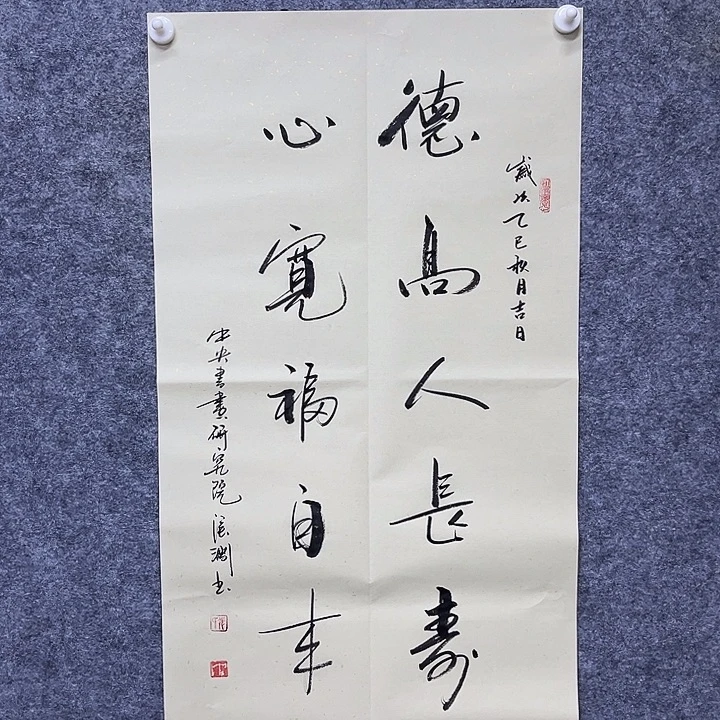 歲次乙巳秋月吉日
德高人長壽
心寬福自来
中央書畫研究院 淵书